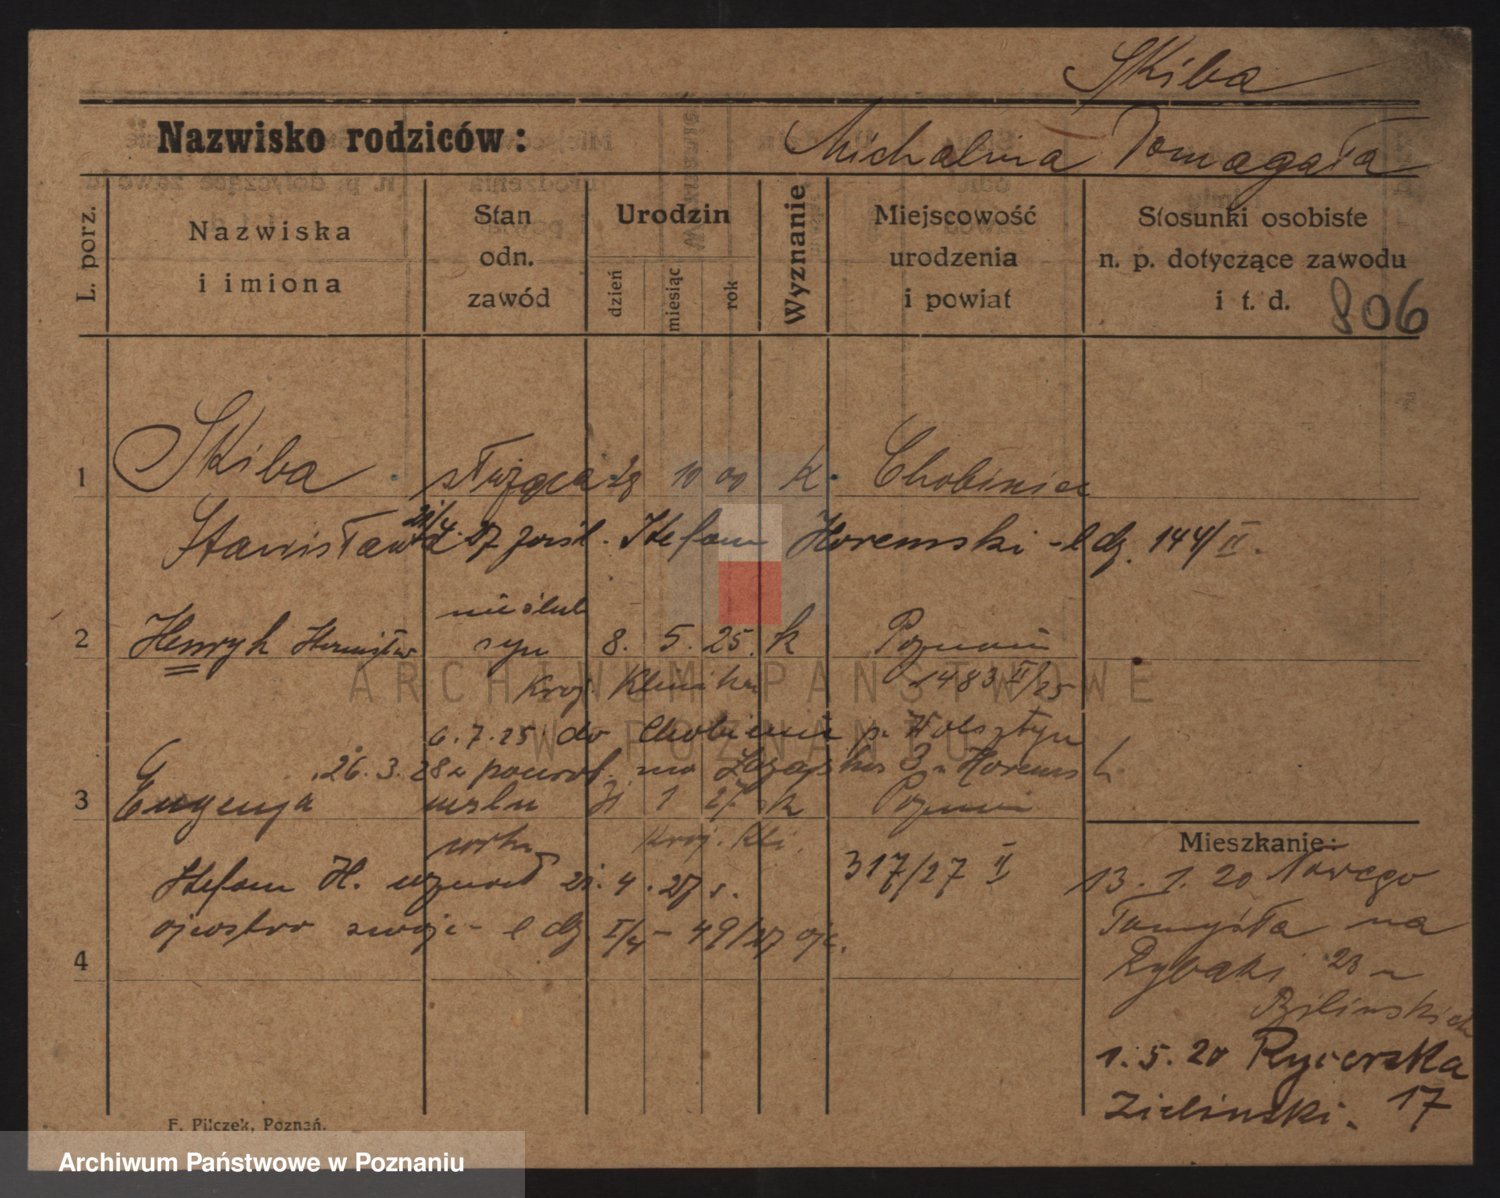 Skiba
Nazwisko rodziców:
Michalina Domagała
L. porz.
Nazwiska i imiona
Stan odn. zawód
Urodzin
dzień
miesiąc
rok
Wyznanie
Miejscowość urodzenia i powiat
Stosunki osobiste n. p. dotyczące zawodu i t. d.
806
1 Skiba służąca 10 00 k. Chobienice
Stanisława 21/4. 27 Stefan Horemski - l dz. 144/II.
nieślub
2 Henryk syn 8. 5. 25. k Poznań
Klinika 1483 II/25
6.7.25. do Chobienic p. Wolsztyn
26. 3. 28 powrot. na 3
3 Eugenja 1 27 k Poznań
317/27 II
Stefan H. uznał 21. 4. 27 r.
ojcostwo swoje - l dz. 49/27
4
Mieszkanie:
13. 1. 20 Nowego
Tomyśla na
Rybaki 23
Bilinskich
1. 5. 20 Rycerska
Zielinski. 17
F. Pilczek, Poznań.
ARCHIWUM PAŃSTWOWE
W POZNANIU
Archiwum Państwowe w Poznaniu